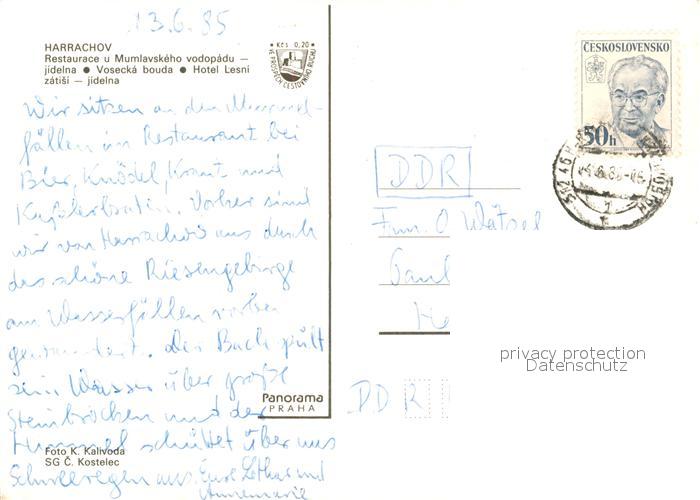 13.6.85
HARRACHOV
Restaurace u Mumlavského vodopádu –
jídelna ● Vosecká bouda ● Hotel Lesní
zátiší – jídelna
• Kčs 0,20 •
VE PROSPĚCH CESTOVNÍHO RUCHU
ČESKOSLOVENSKO
50h
512 46
Wir sitzen an den Mummel-
fällen im Restaurant bei
Bier, Knödel, Kraut und
Kaßlerbraten. Vorher sind
wir von Harrachov aus durch
das schöne Riesengebirge
am Wasserfällen vorbei
gewandert. Der Bach spült
sein Wasser über große
Steinbrocken und der
Himmel schüttet über uns
Schneeregen aus. Eure Lothar und
Annemarie
DDR
Fam. O Wätzel
Paul
He
DDR
privacy protection
Datenschutz
Panorama
PRAHA
Foto K. Kalivoda
SG Č. Kostelec